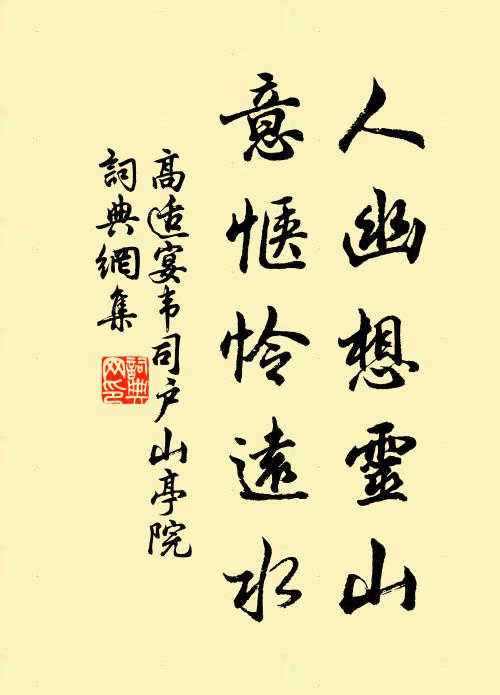 人幽想靈山
意愜怜遠水
高适宴韦司户山亭院
詞典網集
詞典网印